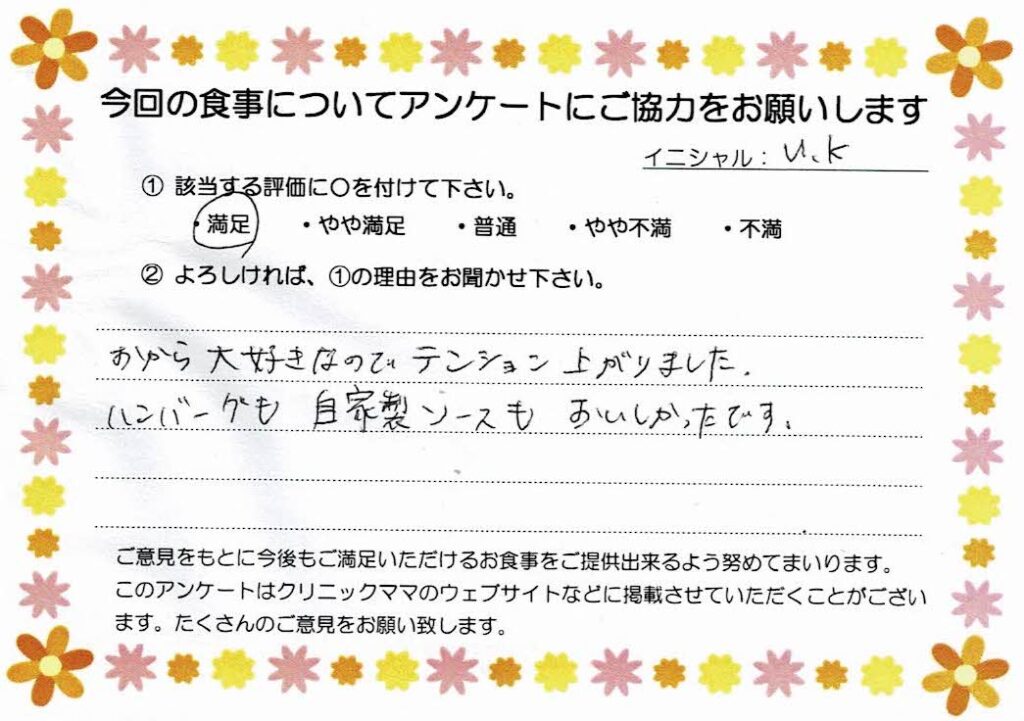 今回の食事についてアンケートにご協力をお願いします
イニシャル: U.K
① 該当する評価に〇を付けて下さい。
・満足 ・やや満足 ・普通 ・やや不満 ・不満
② よろしければ、①の理由をお聞かせ下さい。
おから大好きなのでテンション上がりました.
ハンバーグも 自家製ソースも おいしかったです.
ご意見をもとに今後もご満足いただけるお食事をご提供出来るよう努めてまいります。
このアンケートはクリニックママのウェブサイトなどに掲載させていただくことがござい
ます。たくさんのご意見をお願い致します。